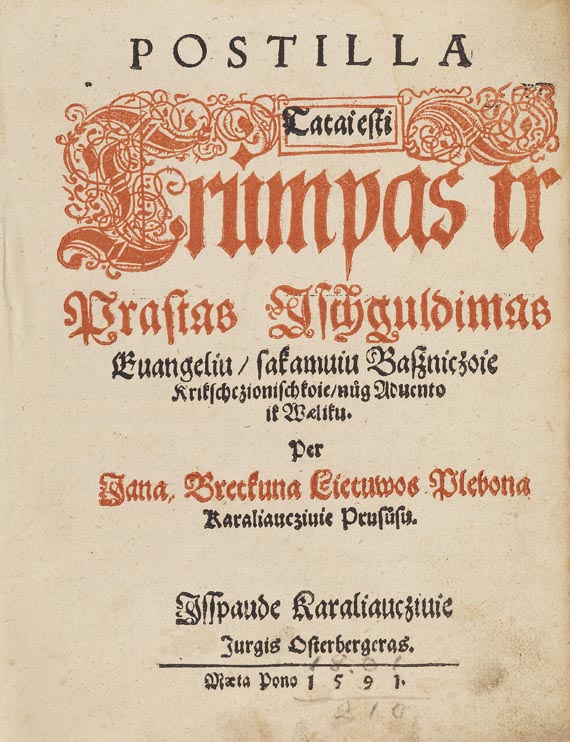 POSTILLA
Tatai esti
Trumpas ir
Prastas Ischguldimas
Euangeliu / sakamuiu Baszniczoie
Krikschczionischkoie / nůg Aduento
ik Wæliku.
Per
Jana, Bretkuna Lietuwos Plebona
Karaliaucziuie Prusůsu.
Isspaude Karaliaucziuie
Jurgis Osterbergeras.
Mæta Pono 1591.
210